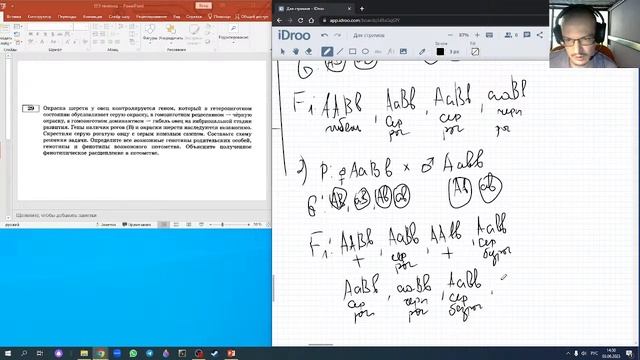 Для стримов - iDroo
app.idroo.com
iDroo
Для стримов
87%
29 Окраска шерсти у овец контролируется геном, который в гетерозиготном
состоянии обусловливает серую окраску, в гомозиготном рецессивном — чёрную
окраску, в гомозиготном доминантном — гибель овец на эмбриональной стадии
развития. Гены наличия рогов (B) и окраски шерсти наследуются независимо.
Скрестили серую рогатую овцу с серым комолым самцом. Составьте схему
решения задачи. Определите все возможные генотипы родительских особей,
генотипы и фенотипы возможного потомства. Объясните полученное
фенотипическое расщепление в потомстве.
Щелкните, чтобы добавить заметки
русский
F1: AABb, AaBb, AaBb, aaBb
гибель сер рог сер рог черн рог
2) P: ♀ AaBb × ♂ Aabb
G: AB, aB, Ab, ab Ab ab
F1: AABb, AaBb, AAbb, Aabb
+ сер рог + сер безрог
AaBb, aaBb, Aabb,
сер рог черн рог сер безрог
14:50
РУС